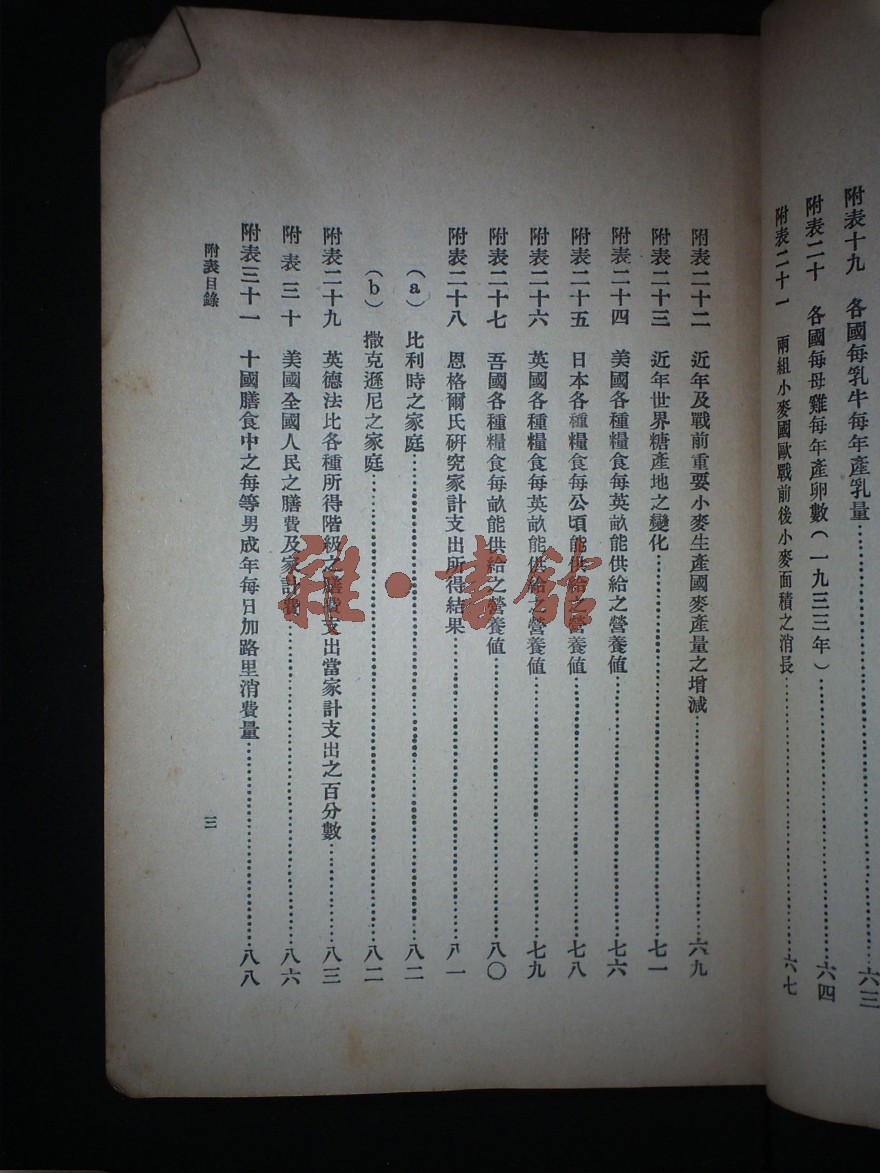 附表十九　各國每乳牛每年產乳量……六三
附表二十　各國每母雞每年產卵數(一九三三年)……六四
附表二十一　兩組小麥國歐戰前後小麥面積之消長……六七
附表二十二　近年及戰前重要小麥生產國麥產量之增減……六九
附表二十三　近年世界糖產地之變化……七一
附表二十四　美國各種糧食每英畝能供給之營養値……七六
附表二十五　日本各種糧食每公頃能供給之營養値……七八
附表二十六　英國各種糧食每英畝能供給之營養値……七九
附表二十七　吾國各種糧食每畝能供給之營養値……八〇
附表二十八　恩格爾氏研究家計支出所得結果……八一
(a)　比利時之家庭……八二
(b)　撒克遜尼之家庭……八二
附表二十九　英德法比各種所得階級之膳費支出當家計支出之百分數……八三
附表三十　美國全國人民之膳費及家計費……八六
附表三十一　十國膳食中之每等男成年每日加路里消費量……八八
附表目錄
三
雜·書館